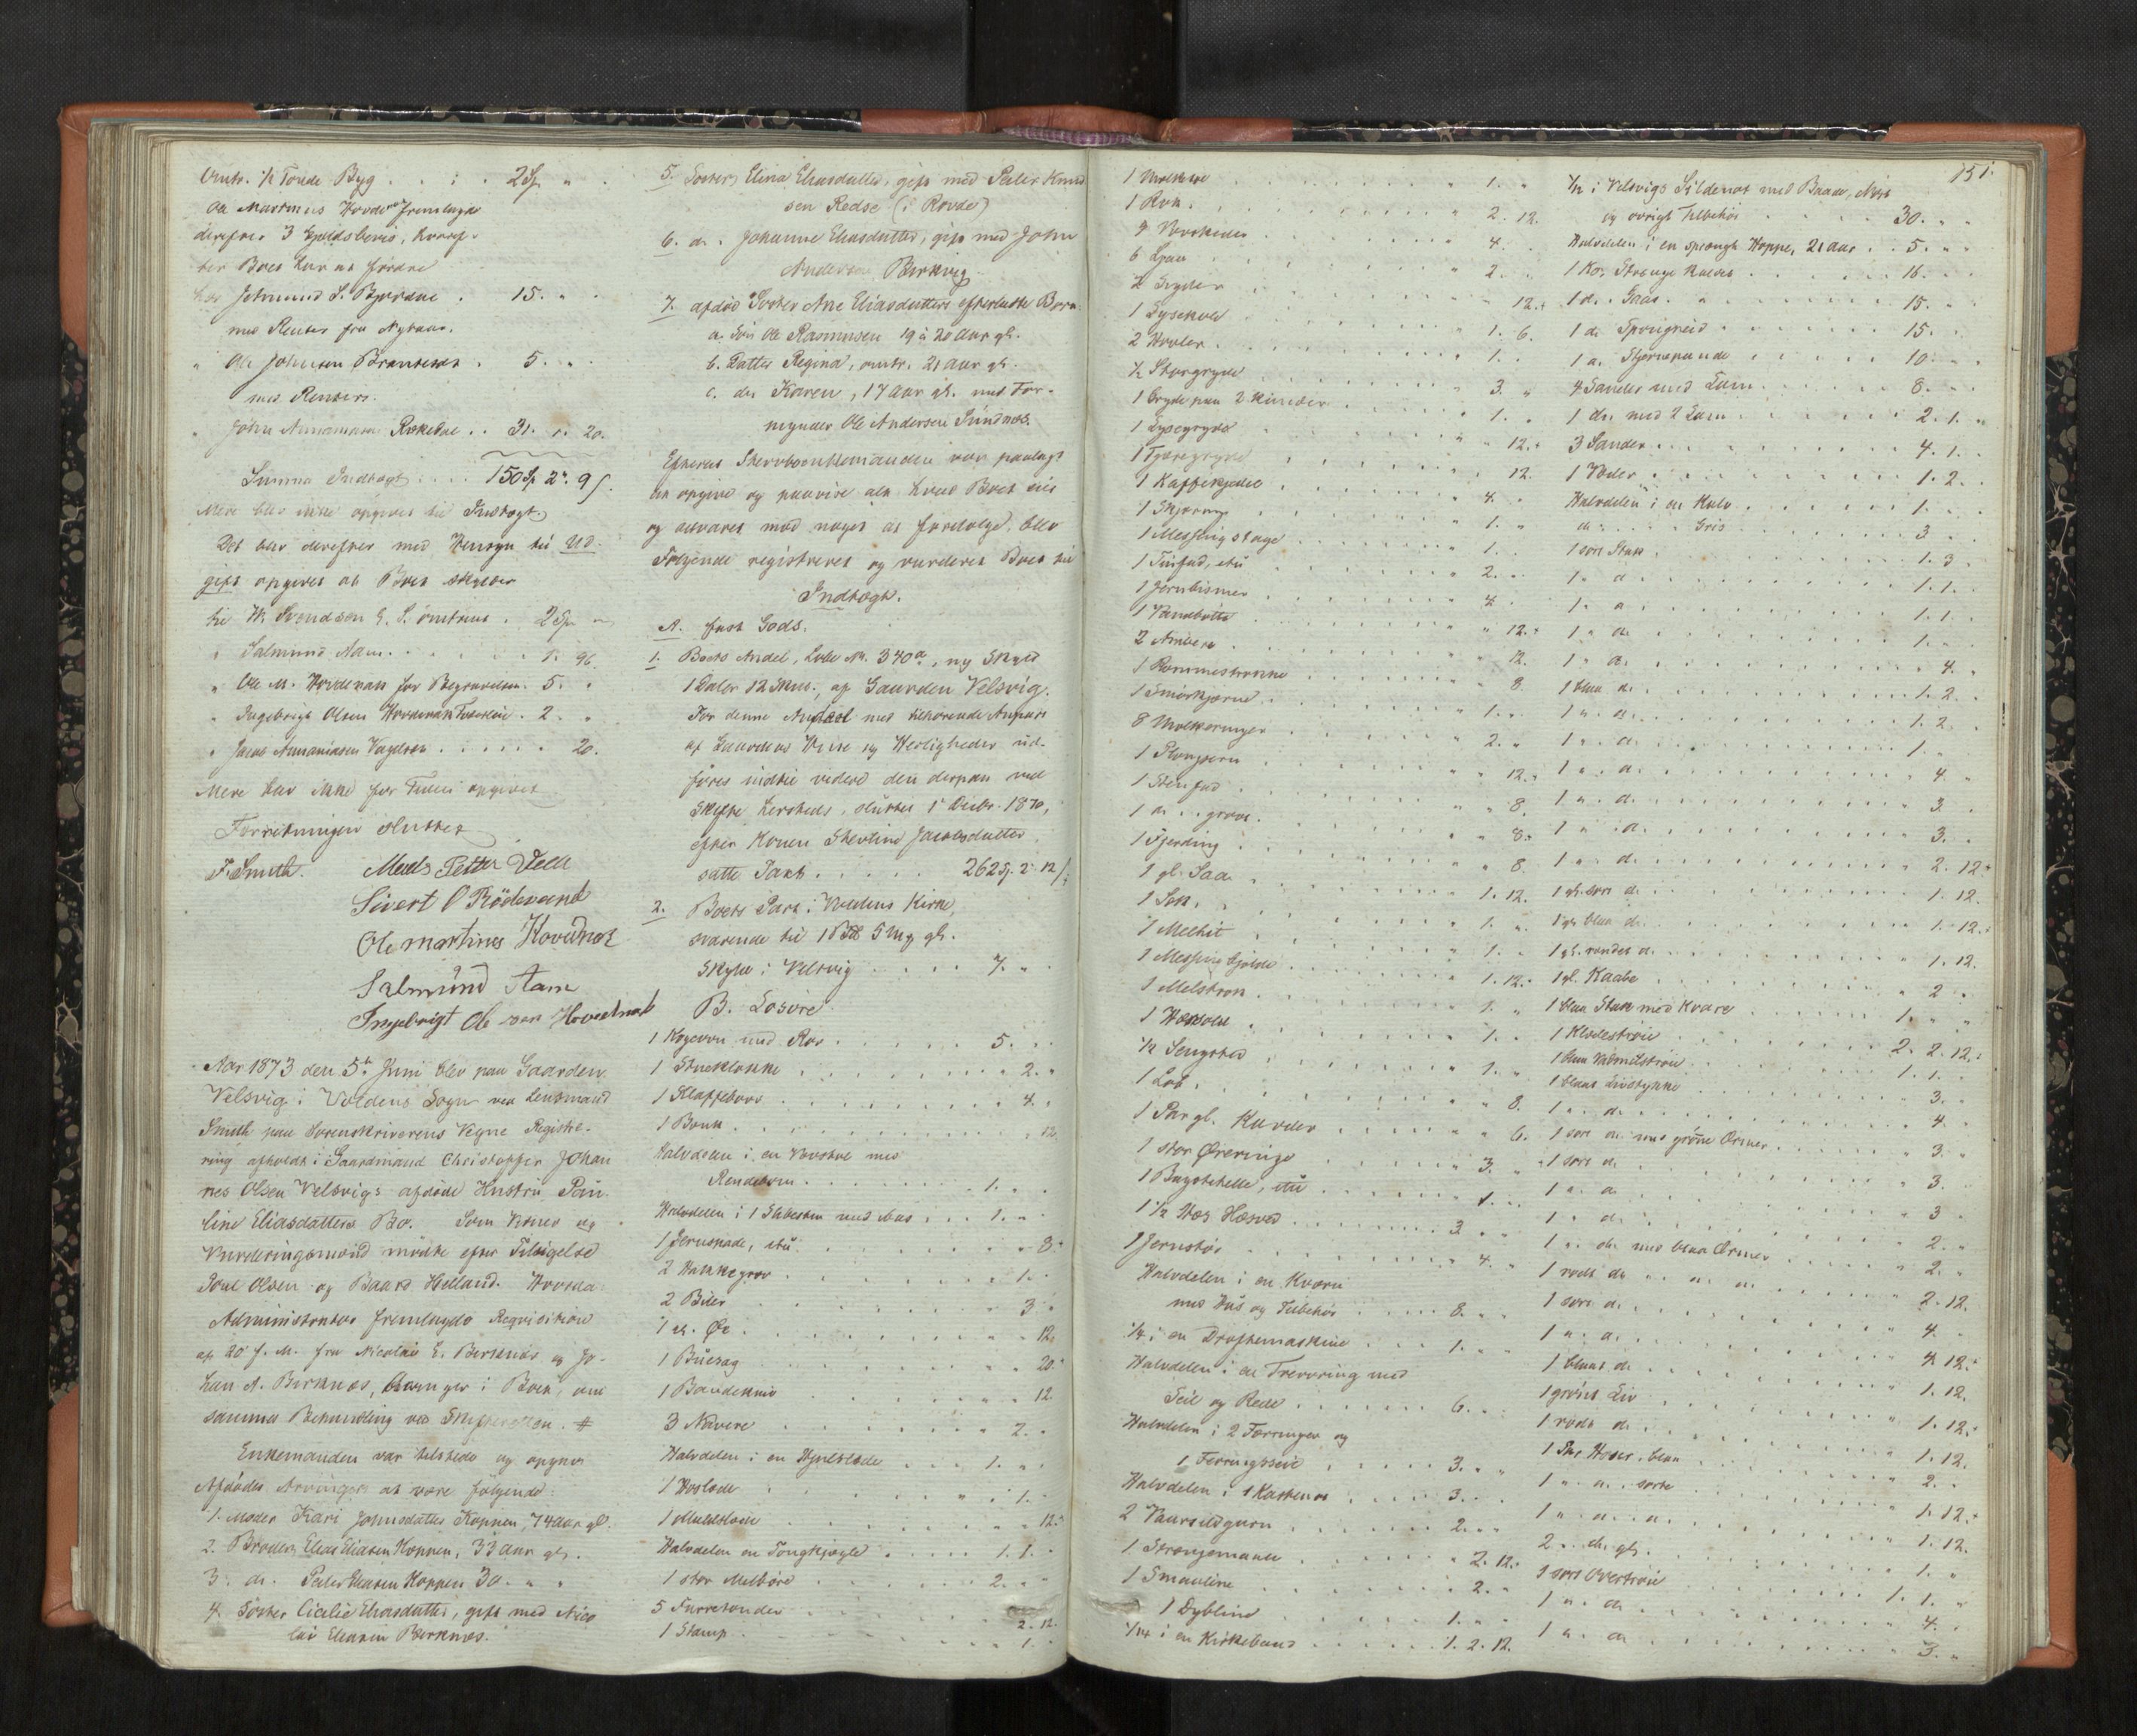 Omtr. 1/2 Tønde Byg . . : . 2 Sp. "
Ole Martinus Hovde fremlagde
derefter 3 Gjeldsbevis, hvoref-
ter Boet har at fordre
hos Johnund S. Bjørdne . 15. "
med Renter fra Nytaar.
" Ole Johnsen . 5. "
med Renter.
" John Ananiasen . . 31. 1. 20.
Summa Indtægt . . . . 150 Sp. 2. 9 s.
Mere blev ikke opgivet til Indtægt.
Det blev derefter med Hensyn til Ud-
gift opgivet at Boet skylder
til W. Svendsen . 2 Sp. "
" Salmund Aam . . . . . 1. 96.
" Ole M. Hovdenak for Begravelsen . 5. "
" Ingebrigt Olsen Hovdenak . 2. "
" Jacob Ananiasen . . . . . 20.
Mere blev ikke for Tiden opgivet
Forretningen sluttet
F. Smith. Mads Petter Vell
Sivert O Rödsvand
Ole martines Hovdnak
Salmund Aam
Ingebrigt Ole sen Hovednak
Aar 1873 den 5te Juni blev paa Gaarden
Velsvig i Voldens Sogn ved Lensmand
Smith paa Sorenskriverens Vegne Registre-
ring afholdt i Gaardmand Christopher Johan
nes Olsen Velsvigs afdøde Hustru Pau-
line Eliasdatters Bo. Som Vidner og
Vurderingsmænd mødte efter Tilsigelse
Joel Olsen og Baard Helland. Hvorda
Administrator fremlagde Reqvisition
af 20 f. M. fra Nicolai E. Berknæs og Jo-
han A. Berknæs, Arvinger i Boet, om
sammes Behandling ved Skifteretten. #
Enkemanden var tilstede og opgav
Afdødes Arvinger at være følgende:
1. Moder Kari Johnsdatter Koppen, 74 aar gl.
2. Broder Elias Eliasen Koppen, 33 aar gl.
3. do. Peder Eliasen Koppen 30. " "
4. Søster Cicilie Eliasdatter, gift med Nico
lai Eliasen Berknæs.
5. Søster Elina Eliasdatter, gift med Peder Knud
sen Redse (i Rovde)
6. do. Johanne Eliasdatter, gift med John
Andersen Berkvig
7. afdød Søster Ane Eliasdatters efterladte Børn
a. Søn Ole Rasmusen 19 à 20 aar gl.
b. Datter Regina, omtr. 21 aar gl.
c. do. Karen, 17 aar gl. med For-
mynder Ole Andersen Sundnæs.
Efterat Stervboenkemanden var paalagt
at opgive og paavise alt hvad Boet eier
og advaret mod noget at fordølge, blev
Følgende registreret og vurderet Boet til
Indtægt.
A. fast Gods.
1. Boets Andel, Løbe No. 340a, ny Skyld
1 Daler 12 Skill., af Gaarden Velsvig.
For denne Andeel med tilhørende Anpart
af Gaardens Huse og Herligheder ud-
føres indtil videre den derpaa ved
Skifte hersteds, sluttet 1 Decbr. 1870,
efter Konen Jacobsdatter
satte Taxt . . . . . 262 Sp. 2. 12 s.
2. Boets Part i Voldens Kirke,
svarende til 1 Pd 5 Mg gl.
Skyld i Velsvig . . . . 7. "
B. Løsøre
1 Kogeovn med Rør . . . . . 5. "
1 Stueklokke . . . . . 2. "
1 Klapbord . . . . . 4. "
1 Bænk . . . . . 12.
Halvdelen i en Vævstol med
Rendebom . . . . . 1. "
Halvdelen i 1 Slibesten med Hus . . . 1. "
1 Jernspade, itu . . . . . 8.
2 Hakkegrev . . . . . 1. "
2 Biler . . . . . 3. "
1 gl. Øx . . . . . 12.
1 Buesag . . . . . 20.
1 Baandkniv . . . . . 12
3 Navere . . . . . 2. "
Halvdelen i en Hjulslæde . . . 1. "
1 Høslæde . . . . . 1. "
1 Muldslæde . . . . . 12.
Halvdelen en . . . . 1. 1. "
1 stor Melbøre . . . . . 2. "
5 Furretønder . . . . . 2. 12.
1 Stamp . . . . . 1. "
1 . . . . . 1. "
1 Rok . . . . . 2. 12.
4 . . . . . 4. "
6 Ljaa . . . . . 2. "
2 Sigder . . . . . 12.
1 . . . . . 1. 6.
2 Høvler . . . . . 1. "
1/2 Storgryde . . . . . 3. "
1 Gryde paa 2 . . . . . 1. "
1 Lysegryde . . . . . 12.
1 Tjæregryde . . . . . 12.
1 Kaffekjedel . . . . . 4. "
1 . . . . . 1. "
1 Messingstage . . . . . 1. "
1 Tinfad, itu . . . . . 2. "
1 Jernbismer . . . . . 4.
1 Vandbøtte . . . . . 12.
2 Ambere . . . . . 12.
1 Rømmestrønne . . . . . 8.
1 Smørkjerne . . . . . 1. "
8 Melkeringer . . . . . 2. "
1 Plougjern . . . . . 12.
1 Stenfad . . . . . 8.
1 do. grove . . . . . 8.
1 Fjerding . . . . . 8.
1 gl. Saa . . . . . 1. 12.
1 . . . . . 1. "
1 . . . . . 1. "
1 . . . . . 1. 12.
1 Meltrou . . . . . 1. "
1 . . . . . 1. "
1/2 Sengsted . . . . . 1. "
1 Lod . . . . . 8.
1 Par gl. Karder . . . . . 6.
1 stor Ørering . . . . . 3. "
1 , itu . . . . . 1. "
1 1/2 . . . . . 3. "
1 Jernstør . . . . . 4. "
Halvdelen i en Kværn
med Hus og Tilbehør . . . . . 8. "
1/4 i en Drøftemaskine . . . 1. "
Halvdelen i en Treroring med
Seil og Rede . . . . . 6. "
Halvdelen i 2 Færinger og
1 Færingsseil . . . . . 3. "
Halvdelen i 1 Kastenot . . . . 3. "
2 Vaarsildgarn . . . . . 2. "
1 . . . . . 2. 12.
1 Smaaline . . . . . 2. "
1 Dybline . . . . . 1. "
1/14 i en Kirkebaad . . . . . 1. 2. 12.
151.
1/12 i Velsvigs Sildenot med Baade, Nøst
og øvrigt Tilbehør . . . . . 30. "
Halvdelen i en sprængt Hoppe, 21 aar . . 5. "
1 Ko, . . . . . 16. "
1 do. Gaas . . . . . 15. "
1 do. . . . . . 15. "
1 do. Stjernerunde . . . . . 10. "
4 Sauder med Lam . . . . . 8. "
1 do. med 2 Lam . . . . . 2. 1. "
3 Sauder . . . . . 4. 1. "
1 Væder . . . . . 1. 2. "
Halvdelen i en Kalv . . . . . 1. "
do. . . Gris . . . . . 3. "
1 sort Stak . . . . . 1. 3. "
1 " do. . . . . . 1. 1. "
1 " do. . . . . . 1. 1. "
1 " do. . . . . . 1. "
1 " do. . . . . . 4. "
1 blaa do. . . . . . 1. 2. "
1 " do. . . . . . 1. 2. "
1 " do. . . . . . 1. "
1 " do. . . . . . 4. "
1 " do. . . . . . 3. "
1 " do. . . . . . 3. "
1 " do. . . . . . 2. 12.
1 gl. sort do. . . . . . 1. 12.
1 gl. blaa do. . . . . . 1. 12.
1 gl. randet do. . . . . . 1. 12.
1 gl. Kaabe . . . . . 2. "
1 blaa Stak med Kvare . . . . . 1. "
1 Klædestrøie . . . . . 2. 2. 12.
1 blaa Vadmelstrøie . . . . . 1. 1. "
1 blaat Livstykke . . . . . 3. "
1 " do. . . . . . 4. "
1 sort do. med grønne Ærmer . . . . . 3. "
1 sort do. . . . . . 3. "
1 " do. . . . . . 3. "
1 " do. . . . . . 2. "
1 " do. med blaa Ærmer . . . . . 2. "
1 rødt do. " do. do. . . . . . 2. 12.
1 sort do. . . . . . 4. "
1 " do. . . . . . 4. 12.
1 blaat do. . . . . . 1. 12.
1 grønt Liv . . . . . 1. 12.
1 rødt do. . . . . . 1. 12.
1 Par Hoser, blaa . . . . . 2. "
1 " do. sorte . . . . . 1. 12.
1 " do. do. . . . . . 1. 12.
2 " do. gl. . . . . . 1. "
1 sort Overtrøie . . . . . 1. 1. "
1 " do. . . . . . 4. "
1 " do. . . . . . 3. "